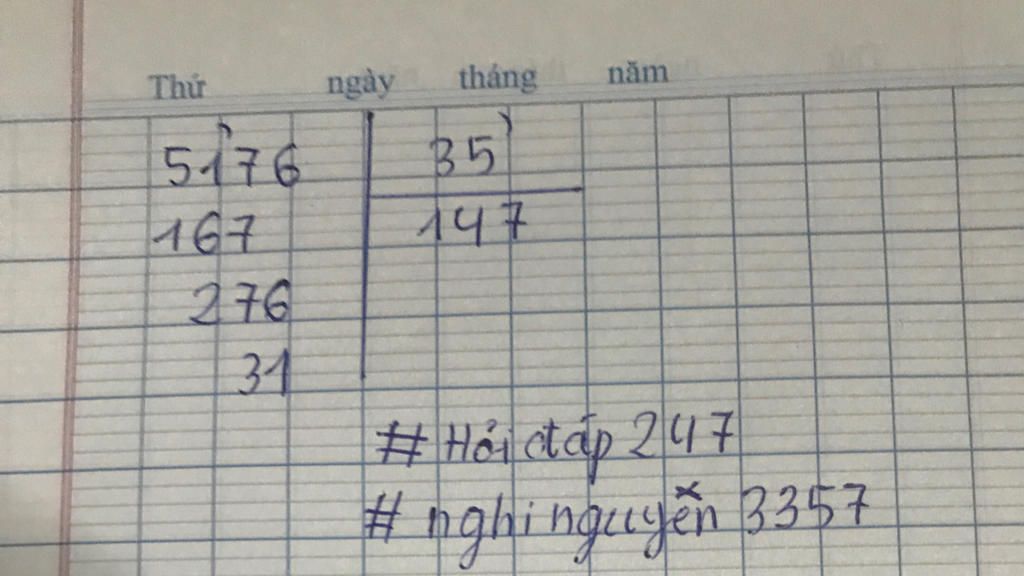 Thứ ngày tháng năm
5176 35
167 147
276
31
# Hỏi đáp 247
# nghi nguyễn 3357